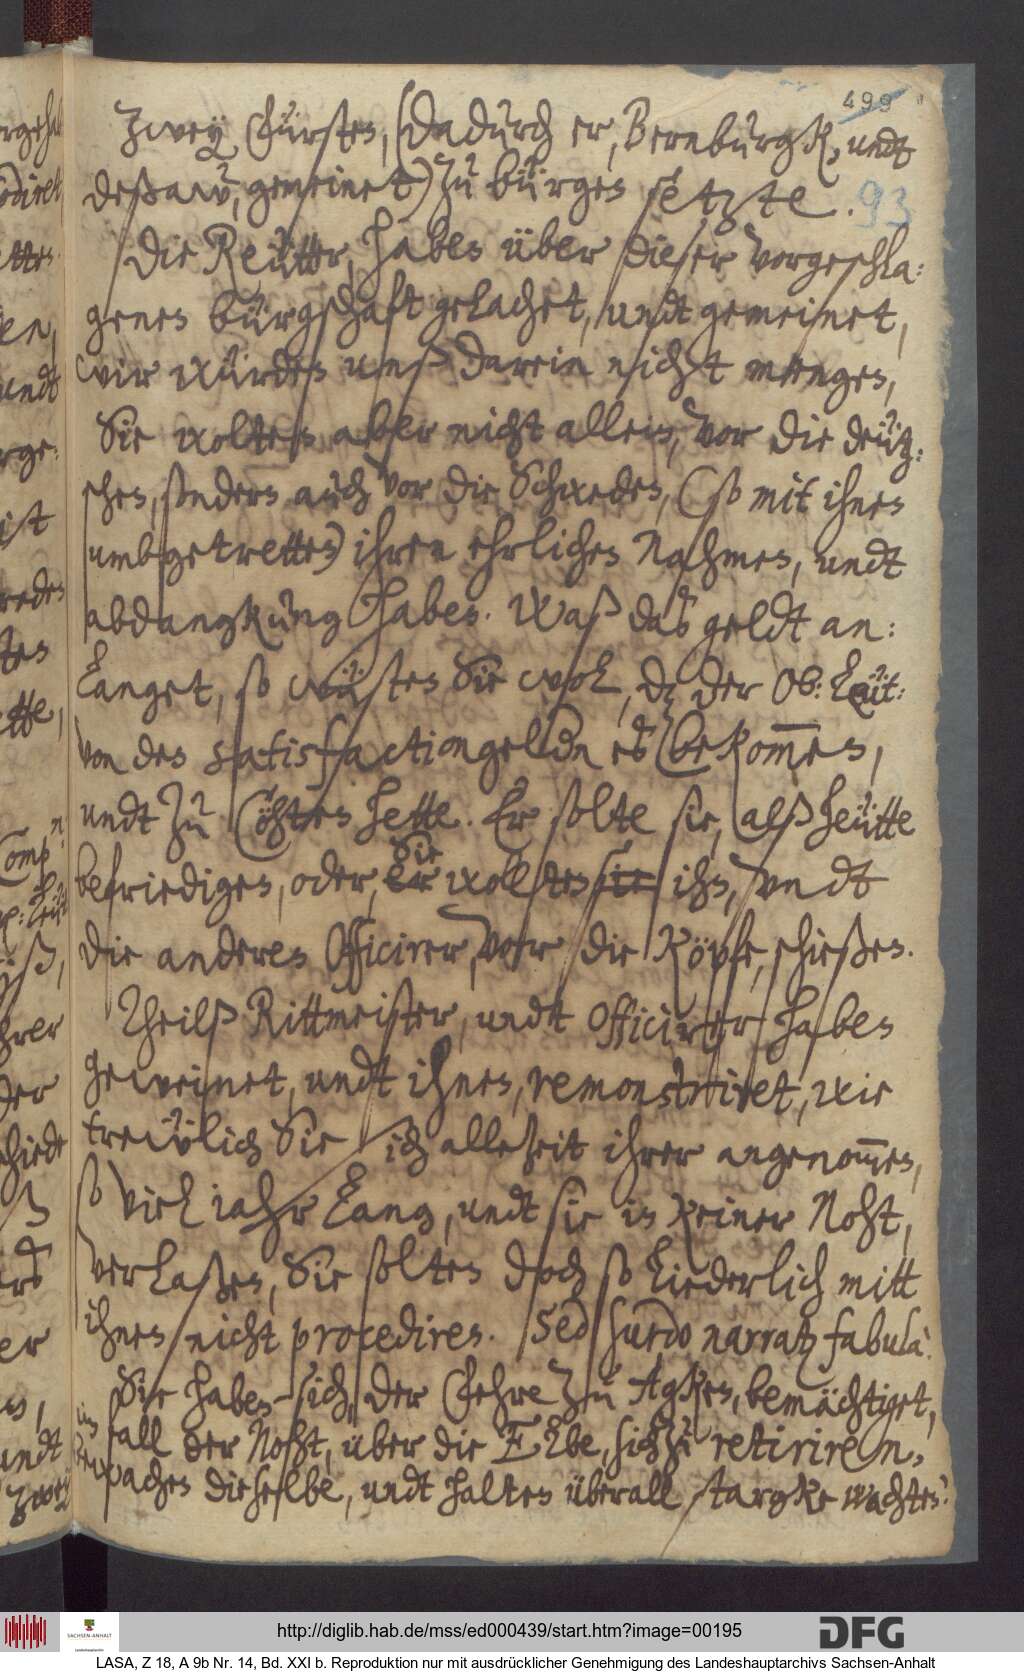 499
Zwey Fürsten, (dadurch er, Bernburgk, undt
deßaw, gemeinet) zu bürgen setzte.
93
Die Reütter, haben über dieser vorgeschla:
genen bürgschaft gelachet, undt gemeinet,
wir würden unß darein nicht mengen,
Sie wolten aber nicht allein, vor die deütz:
schen, sondern auch vor die Schweden, (so mit ihnen
umbgetretten) ihren ehrlichen Nahmen, undt
abdangkung haben. Waß das geldt an:
langet, so wüsten Sie wol, dz der Ob: Leüt:
von den satisfactiongeldn es bekom̅en,
undt zu Cöhten hette. Er solte sie, alß heütte
befriedigen, oder, er Sie wolten sie ihn, undt
die anderen Officirer, vor die Köpfe, schießen.
Theilß Rittmeister, undt Officirer haben
geweinet, undt ihnen, remonstriret, wie
trewlich Sie sich allezeit ihrer angenom̅en,
so viel iahr lang, undt sie in keiner Noht,
verlaßen, Sie solten doch so liederlich mitt
ihnen nicht procediren. Sed surdo narratz fabula.
Sie haben sich, der Fehre zu Agken, bemächtiget,
im fall der Noht, über die Elbe, sich zu retiriren,
bewachen dieselbe, undt halten überall, stargke wachten.
http://diglib.hab.de/mss/ed000439/start.htm?image=00195
SACHSEN-ANHALT
DFG
LASA, Z 18, A 9b Nr. 14, Bd. XXI b. Reproduktion nur mit ausdrücklicher Genehmigung des Landeshauptarchivs Sachsen-Anhalt